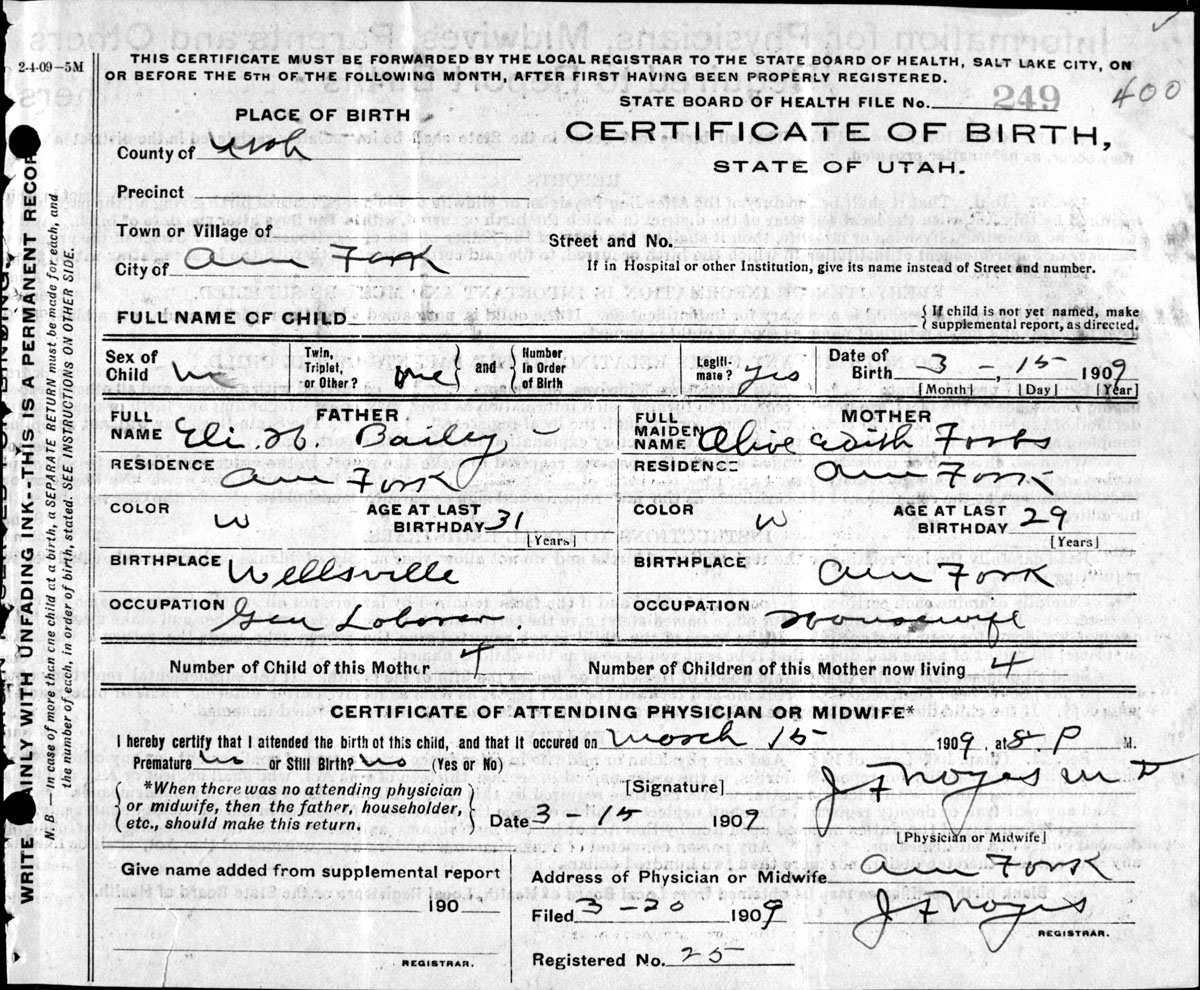 2-4-09—5M
THIS CERTIFICATE MUST BE FORWARDED BY THE LOCAL REGISTRAR TO THE STATE BOARD OF HEALTH, SALT LAKE CITY, ON
OR BEFORE THE 5TH OF THE FOLLOWING MONTH, AFTER FIRST HAVING BEEN PROPERLY REGISTERED.
STATE BOARD OF HEALTH FILE No. 249 400
PLACE OF BIRTH
CERTIFICATE OF BIRTH,
STATE OF UTAH.
County of Utah
Precinct
Town or Village of
Street and No.
City of Am Fork
If in Hospital or other Institution, give its name instead of Street and number.
FULL NAME OF CHILD
{ If child is not yet named, make
supplemental report, as directed.
Sex of Child Twin, Triplet, or Other? one } and { Number in Order of Birth Legiti- mate? yes Date of Birth 3 - , 15 1909
[Month] [Day] [Year]
FATHER
FULL NAME Eli H. Bailey
RESIDENCE Am Fork
COLOR W AGE AT LAST BIRTHDAY 31
[Years]
BIRTHPLACE Wellsville
OCCUPATION Gen Laborer
MOTHER
FULL MAIDEN NAME Olive Edith Forbs
RESIDENCE Am Fork
COLOR W AGE AT LAST BIRTHDAY 29
[Years]
BIRTHPLACE Am Fork
OCCUPATION Housewife
Number of Child of this Mother 4 Number of Children of this Mother now living 4
CERTIFICATE OF ATTENDING PHYSICIAN OR MIDWIFE*
I hereby certify that I attended the birth of this child, and that it occured on March 15 1909 at 8 P M.
Premature No or Still Birth? No (Yes or No)
*When there was no attending physician
or midwife, then the father, householder,
etc., should make this return.
[Signature] J F Noyes M D
Date 3 - 15 1909
[Physician or Midwife]
Give name added from supplemental report
190
REGISTRAR.
Address of Physician or Midwife Am Fork
Filed 3 - 20 1909 J F Noyes
REGISTRAR.
Registered No. 25
WRITE PLAINLY WITH UNFADING INK--THIS IS A PERMANENT RECORD
N. B.—In case of more than one child at a birth, a SEPARATE RETURN must be made for each, and
the number of each, in order of birth, stated. SEE INSTRUCTIONS ON OTHER SIDE.